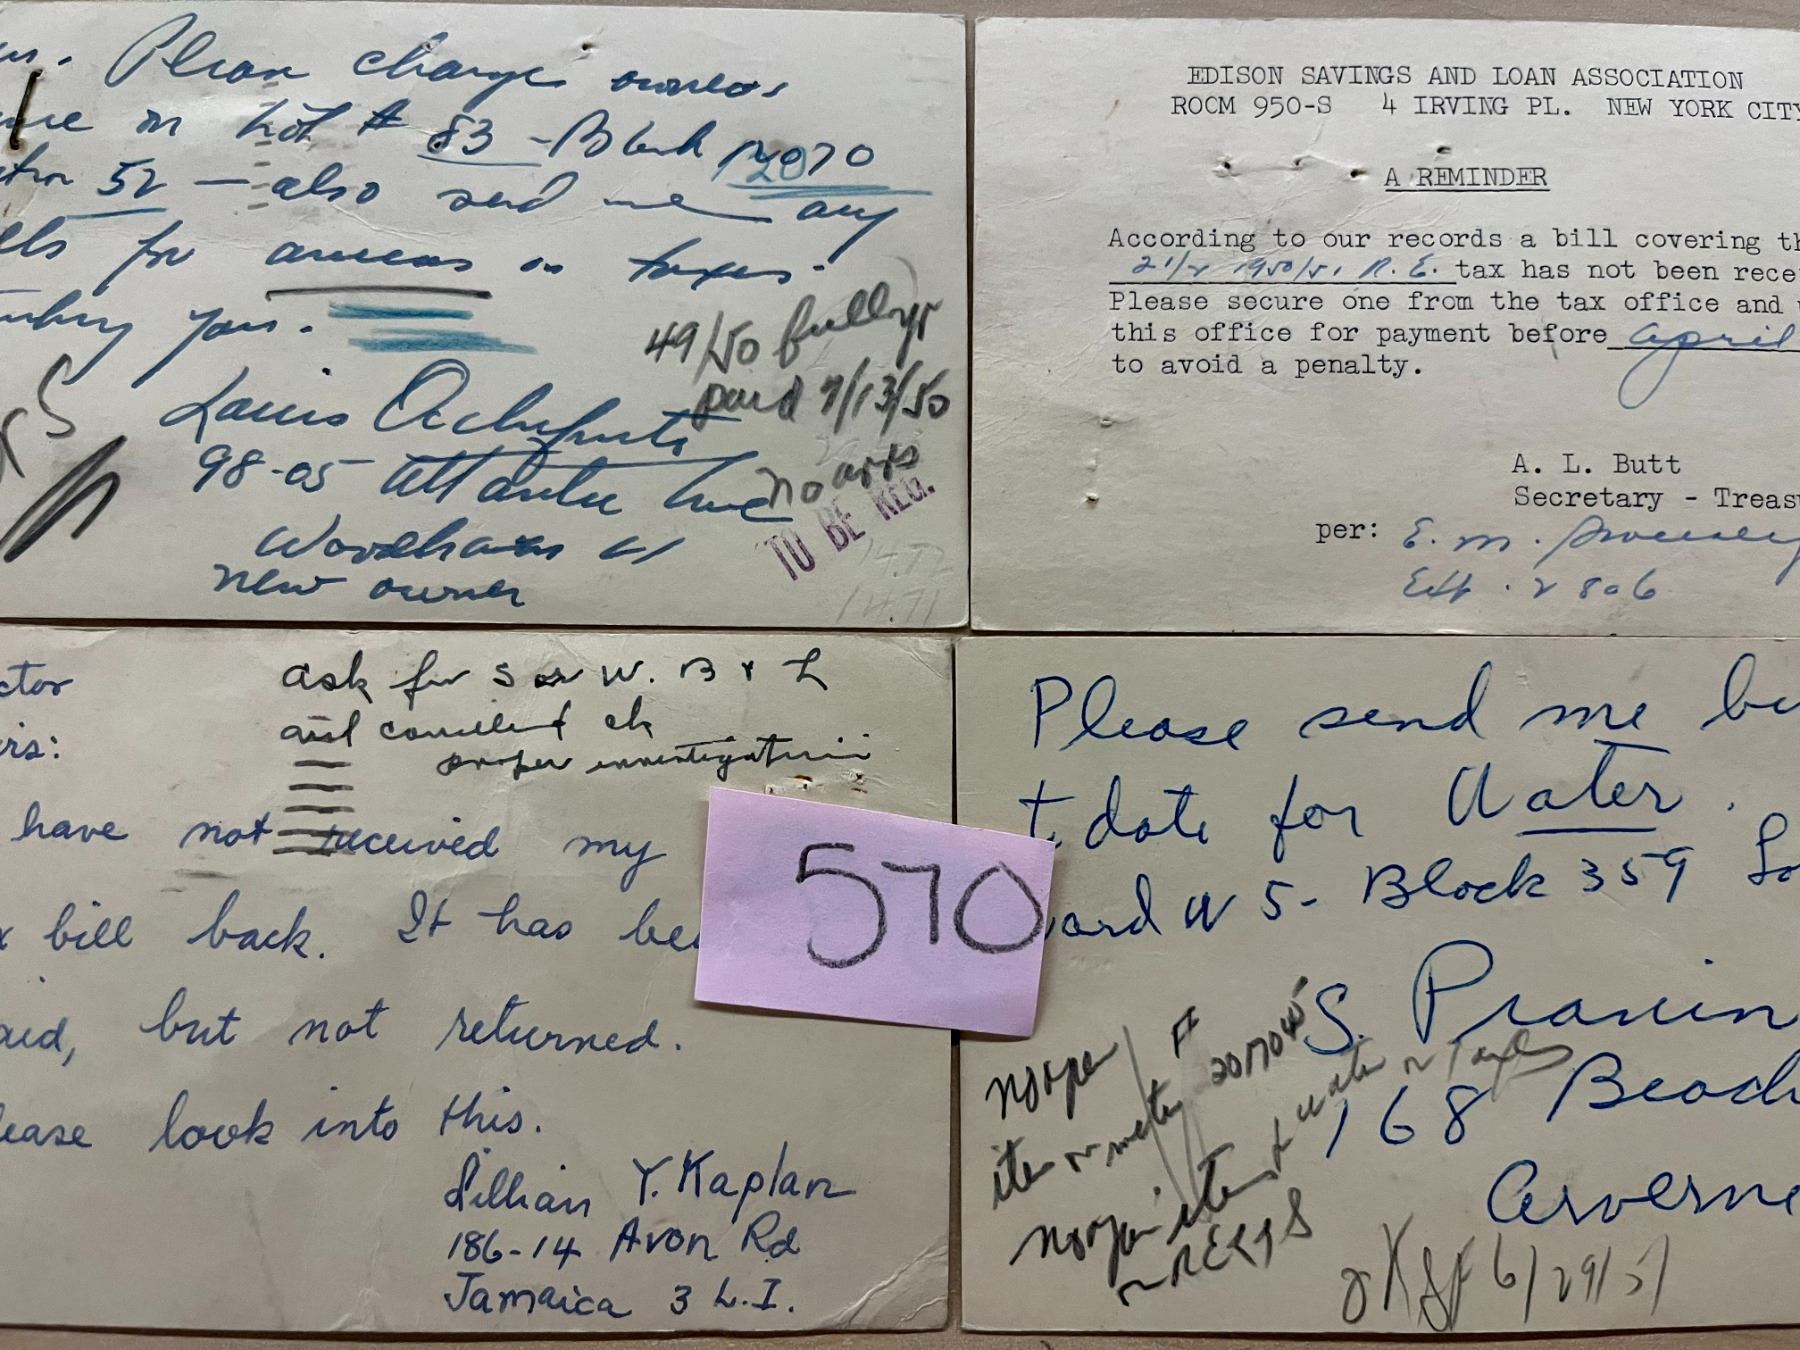 Please change owners
on Lot # 83 - Block 12070
52 — also send me any
for arrears or taxes.
you.
49/50 fully
paid 9/13/50
no arrs
Louis
98-05 Atlantic Ave
TO BE REG.
Woodhaven
new owner
14.71
EDISON SAVINGS AND LOAN ASSOCIATION
ROOM 950-S 4 IRVING PL. NEW YORK CITY
A REMINDER
According to our records a bill covering th
2 1/2 1950/51 R.E. tax has not been rece
Please secure one from the tax office and
this office for payment before April
to avoid a penalty.
A. L. Butt
Secretary - Treas
per: E. M.
Ext. 2806
ctor
rs:
ask for S or W. B & L
and cancelled ck
proper investigation
have not received my
bill back. It has bee
aid, but not returned.
ease look into this.
Lillian Y. Kaplan
186-14 Avon Rd
Jamaica 3 L.I.
570
Please send me bi
t date for Water.
ard W 5- Block 359 Lo
S. Pranin
168 Beach
Arverne
no open
item or meter
no open items water or Taxes
RE & S
OK 6/29/51